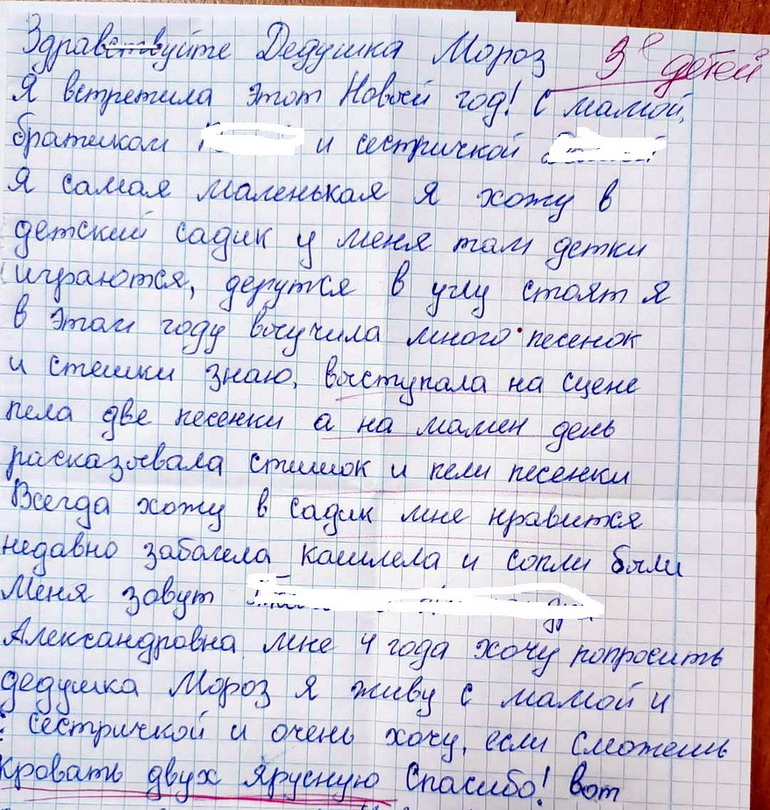 Здравствуйте Дедушка Мороз 3е детей
Я встретила этот Новый год! С мамой,
братиком и сестричкой
Я самая маленькая Я хожу в
детский садик у меня там детки
играются, дерутся в углу стоят я
в этом году выучила много песенок
и стешки знаю, выступала на сцене
пела две песенки а на мамен день
расказывала стишок и пели песенки
Всегда хожу в садик мне нравится
недавно забалела кашлела и сопли были
Меня зовут
Александровна мне 4 года хочу попросить
дедушка Мороз я живу с мамой и
сестричкой и очень хочу, если сможешь
кровать двух ярусную Спасибо! вот